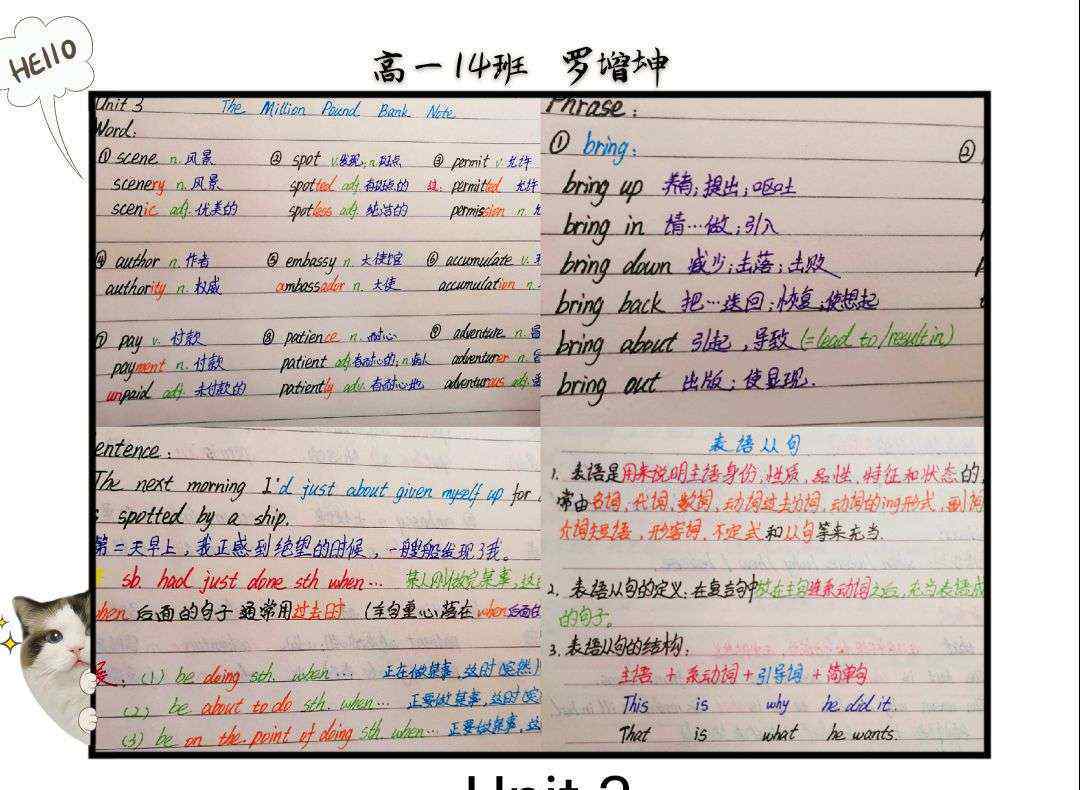 HEllO
高一14班 罗增坤
Unit 3 The Million Pound Bank Note
Word:
① scene n. 风景 ② spot v.发现;n.斑点 ③ permit v. 允许
scenery n. 风景 spotted adj. 有斑点的 permitted 允许
scenic adj. 优美的 spotless adj. 纯洁的 permission n.
④ author n. 作者 ⑤ embassy n. 大使馆 ⑥ accumulate v.
authority n. 权威 ambassador n. 大使 accumulation n.
⑦ pay v. 付款 ⑧ patience n. 耐心 ⑨ adventure n.
payment n. 付款 patient adj.有耐心的;n.病人 adventurer n.
unpaid adj. 未付款的 patiently adv. 有耐心地 adventurous adj.
Phrase:
① bring: ②
bring up 养育;提出;呕吐
bring in 请…做;引入
bring down 减少;击落;击败
bring back 把…送回;恢复;使想起
bring about 引起,导致(=lead to/result in)
bring out 出版;使显现.
entence:
The next morning I'd just about given myself up for
spotted by a ship.
第二天早上,我正感到绝望的时候,一艘船发现了我。
sb. had just done sth when… 某人刚做完某事,这
when 后面的句子通常用过去时 (全句重心落在when后面
(1) be doing sth. when… 正在做某事,这时(突然)
(2) be about to do sth. when… 正要做某事,这时(突
(3) be on the point of doing sth. when… 正要做某事,这
表语从句
1. 表语是用来说明主语身份,性质,品性,特征和状态的,
常由名词,代词,数词,动词过去分词,动词的ing形式,副词
介词短语,形容词,不定式和从句等来充当.
2. 表语从句的定义:在复合句中放在主句连系动词之后,充当表语成
的句子。
3. 表语从句的结构:
主语 + 系动词 + 引导词 + 简单句
This is why he did it.
That is what he wants.